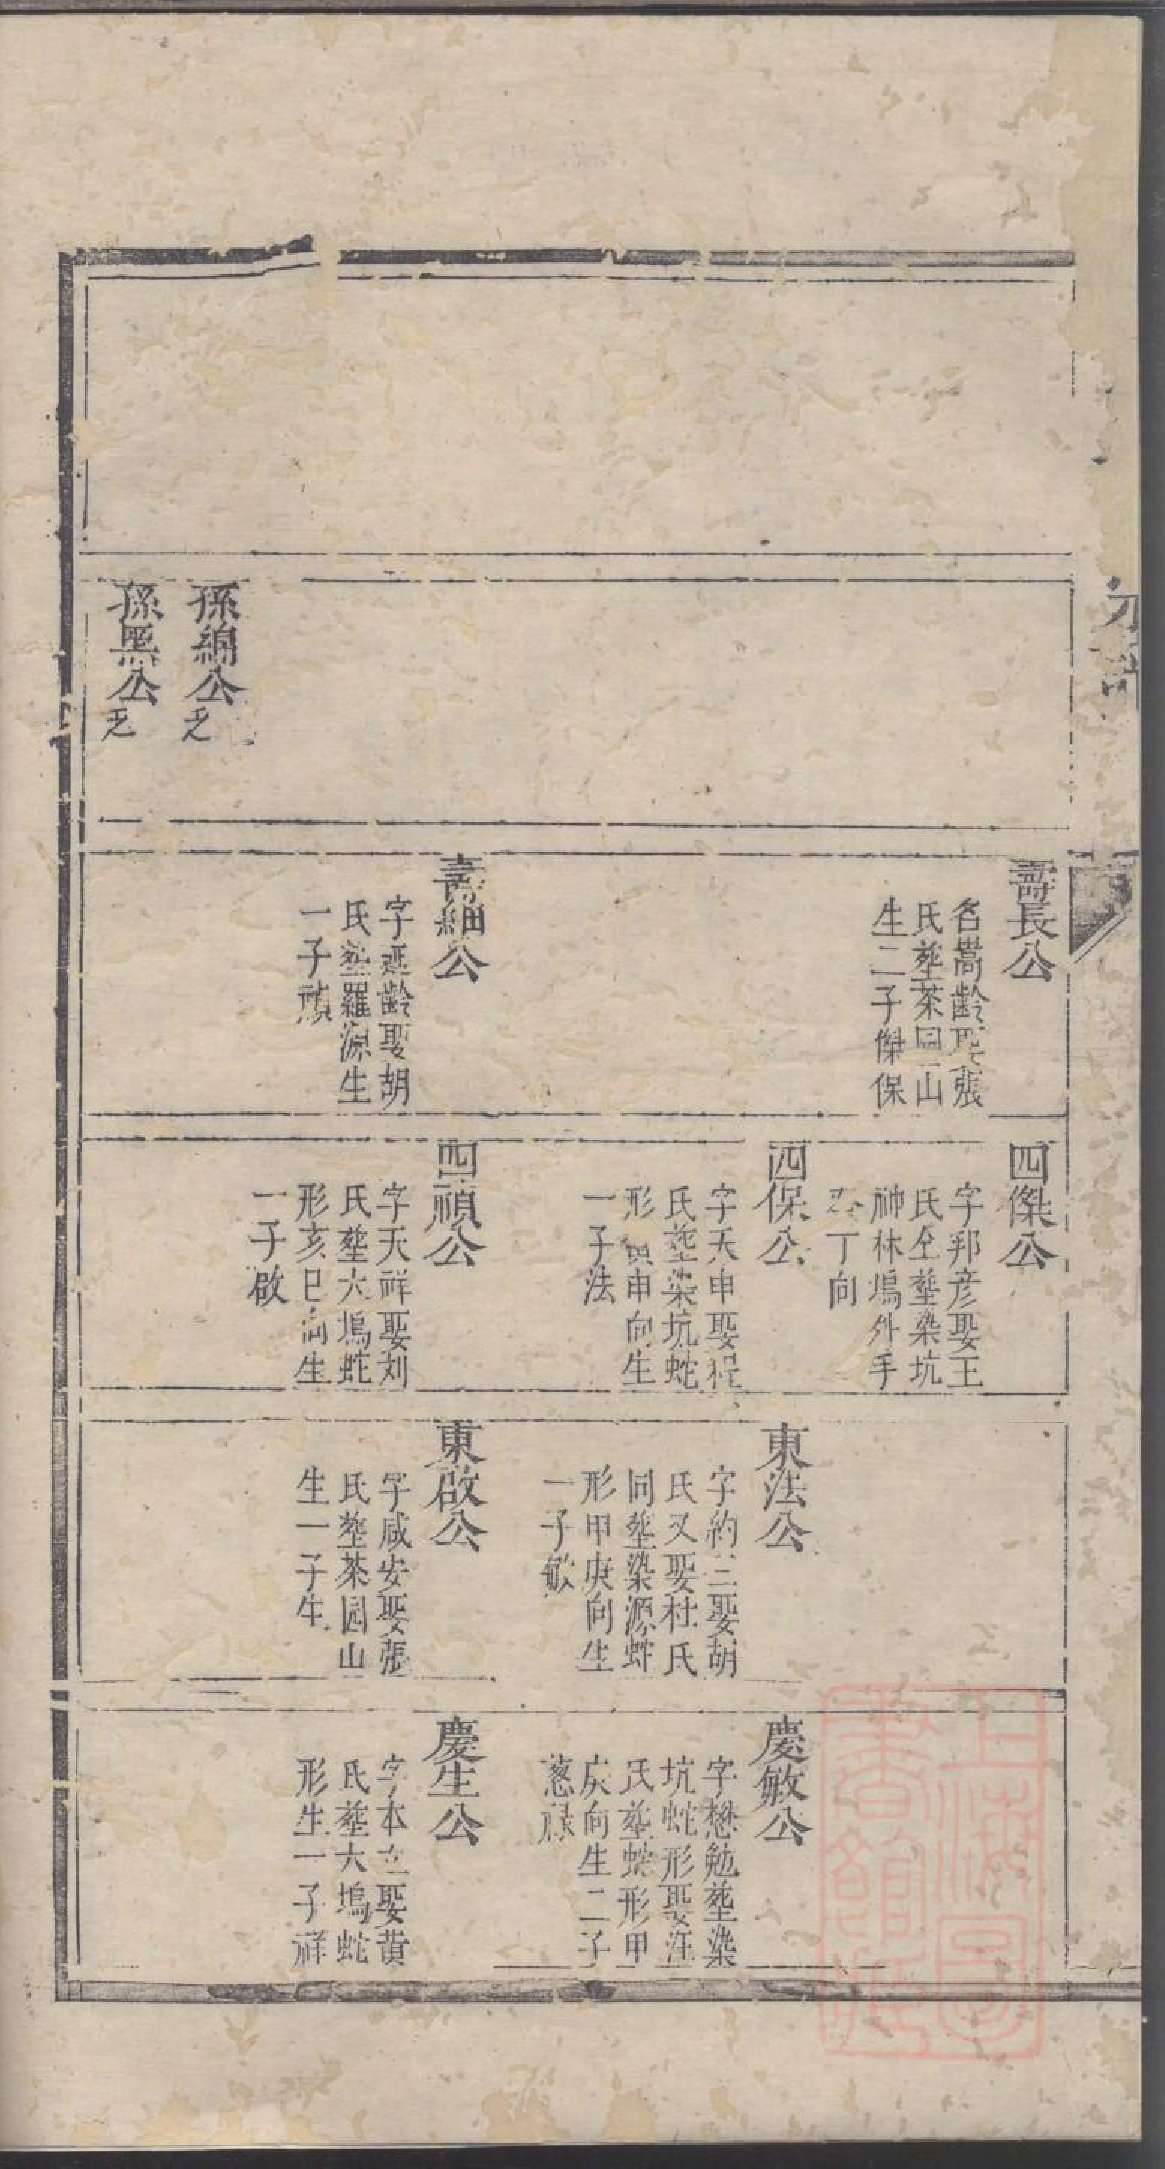 孫綿公乏
孫黑公乏
壽長公
名嵩齡娶張
氏塟茶園山
生二子傑保
壽細公
字延齡娶胡
氏塟羅源生
一子禎
四傑公
字邦彥娶王
氏仝塟染坑
神林塢外手
丁向
四保公
字天申娶程
氏塟染坑蛇
形寅申向生
一子法
四禎公
字天祥娶刘
氏塟大塢蛇
形亥巳向生
一子啟
東法公
字約三娶胡
氏又娶杜氏
同塟染源蛇
形甲庚向生
一子敏
東啟公
字咸安娶張
氏塟茶園山
生一子生
慶敏公
字懋勉塟染
坑蛇形娶汪
氏塟蛇形甲
庚向生二子
慈祿
慶生公
字本立娶黄
氏塟大塢蛇
形生一子祥
上海圖
書館藏